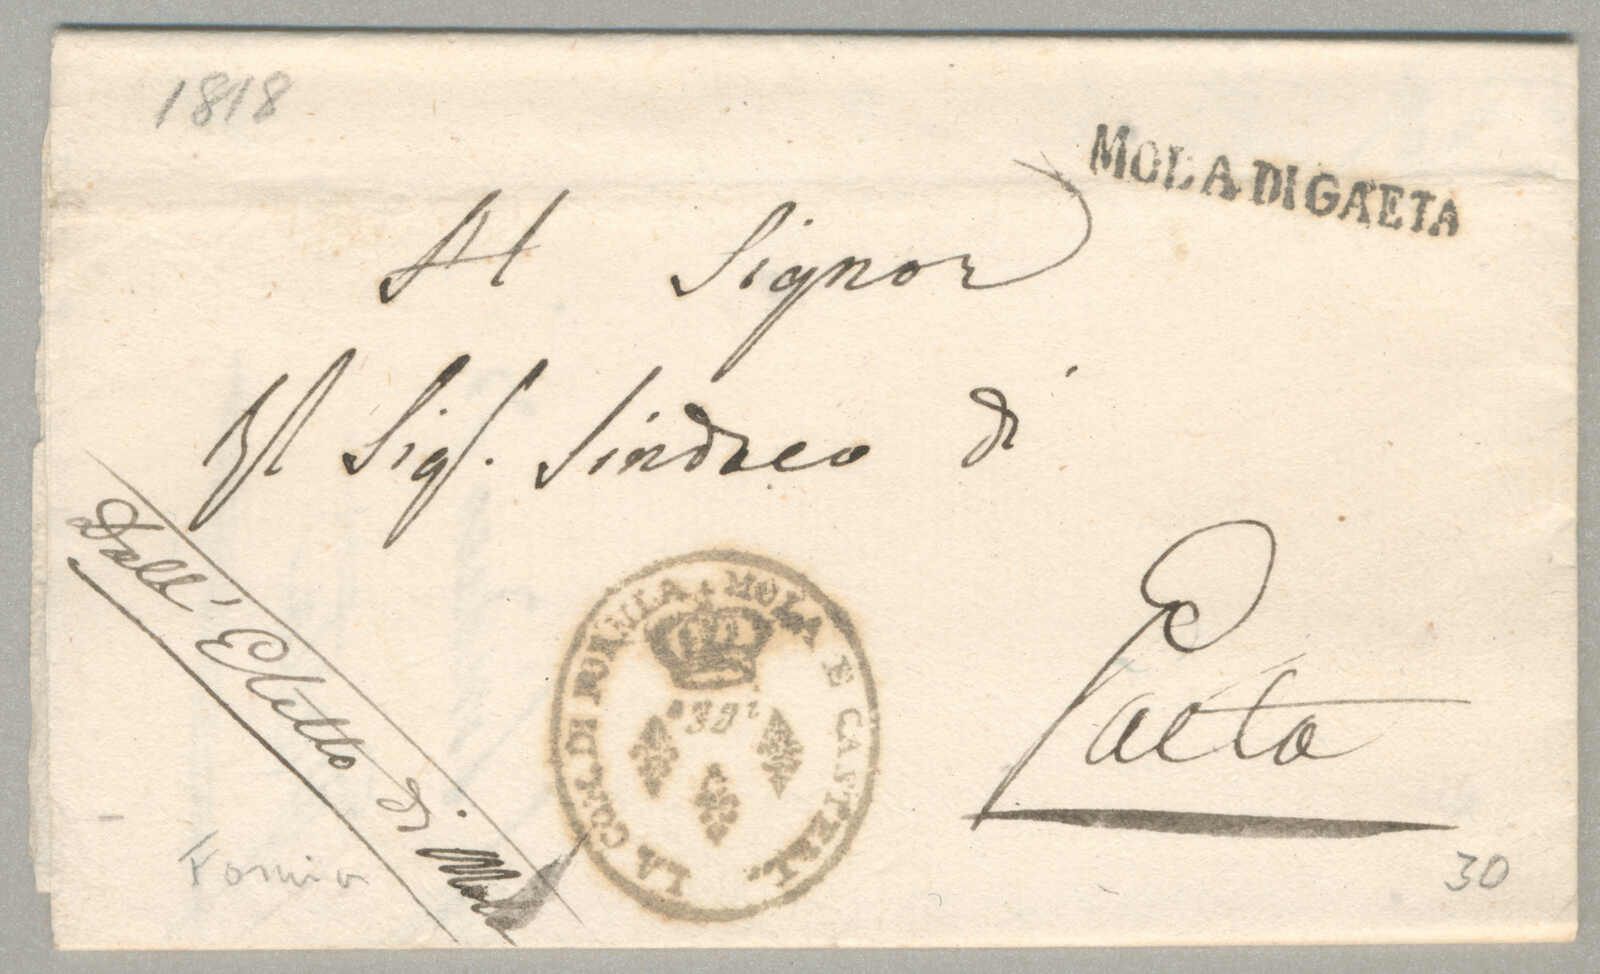 1818
MOLA DI GAETA
Al Signor
Il Sig.r Sindaco di
Gaeta
Dall' Eletto di Mola
LA COM. DI FORMIA MOLA E CASTELL.
Formia
30